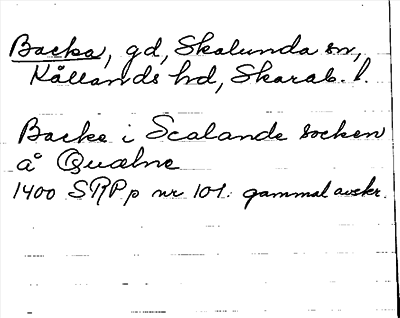 Backa, gd, Skalunda sn,
Kållands hd, Skarab. l.
Backe i Scalande socken
å Quælne
1400 SRPp nr 101. gammal avskr.